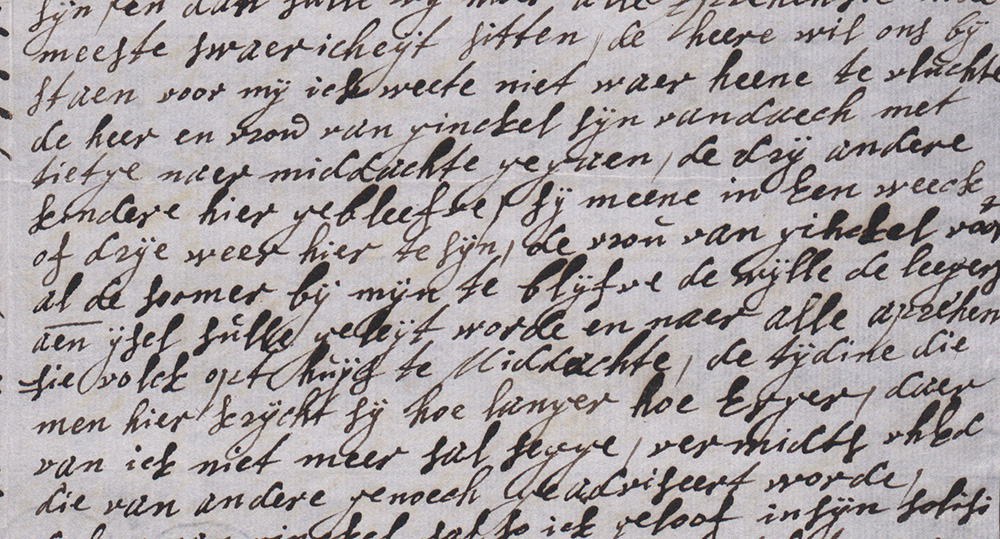 sijn en dan sulle wij met alle aprehensie inde
meeste swaericheijt sitten, de heere wil ons bij
staen voor mij ick weete niet waer heene te vluchte
de heer en vrou van ginckel sijn vandaech met
tietge naer middachte gegaen, de drij andere
kindere hier gebleefve, sij meene in Een weeck
of drije weer hier te sijn, de vrou van ginckel voor
al de soomer bij mijn te blijfve de wijlle de leegers
aen ijsel sulle geleijt worde en naer alle aprehen
sie volck opt huijs te Middachte, de tijdine die
men hier krijcht sij hoe langer hoe Erger, daer
van ick niet meer sal segge, vermidts uhEd
die van andere genoech geadviseert worde,
ginckel sal so ick geloof in sijn solisi